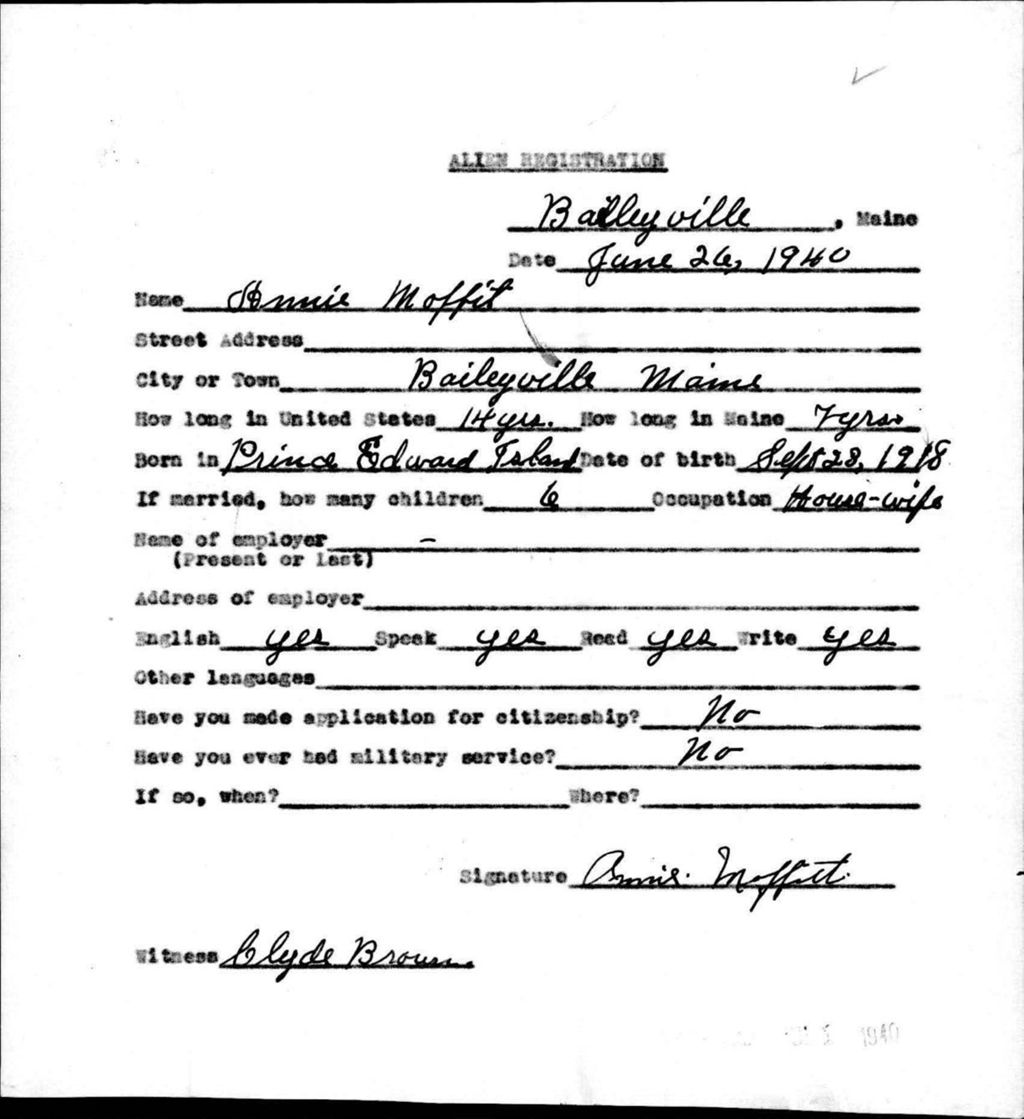 ALIEN REGISTRATION
Baileyville, Maine
Date June 26, 1940
Name Annie Moffit
Street Address
City or Town Baileyville Maine
How long in United States 14 yrs. How long in Maine 7 yrs.
Born in Prince Edward Island Date of birth Sept 28, 1918
If married, how many children 6 Occupation House-wife
Name of employer -
(Present or Last)
Address of employer
English yes Speak yes Read yes Write yes
Other languages
Have you made application for citizenship? No
Have you ever had military service? No
If so, when? Where?
Signature Annie. Moffitt.
Witness Clyde Brown
1940